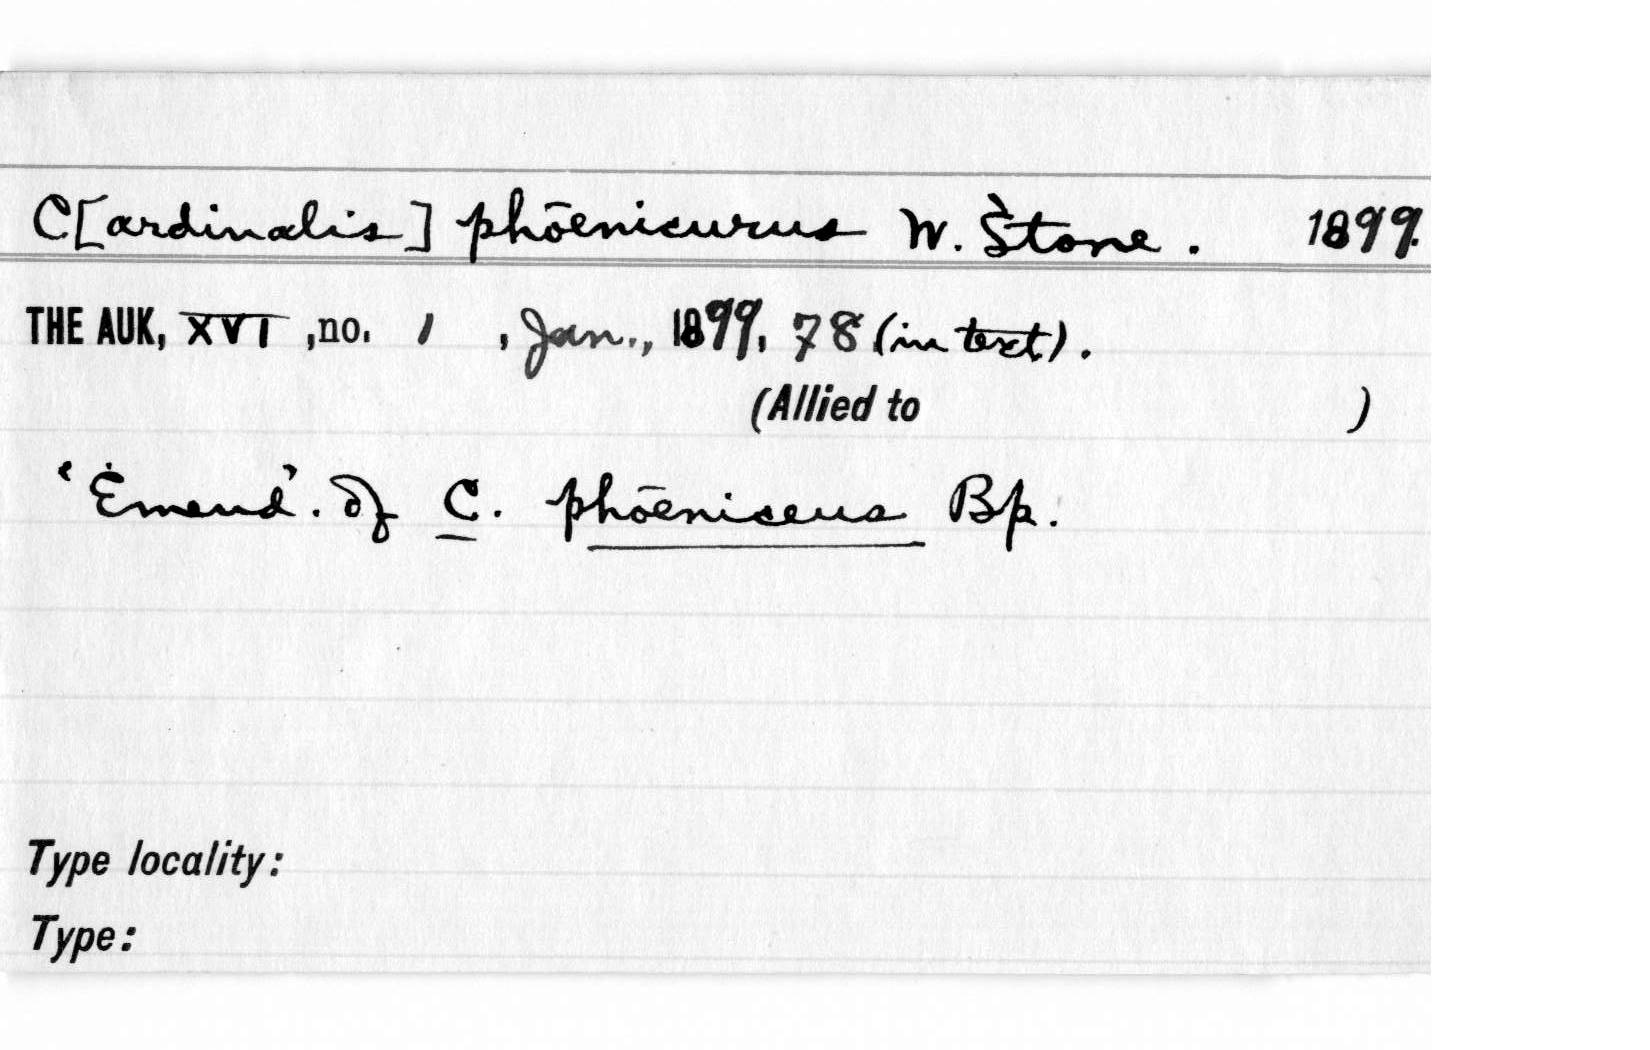 C[ardinalis] phōenicurus W. Stone. 1899.
THE AUK, XVI, no. 1, Jan., 1899, 78 (in text).
(Allied to )
'Emend'. of C. phōeniceus Bp.
Type locality:
Type: